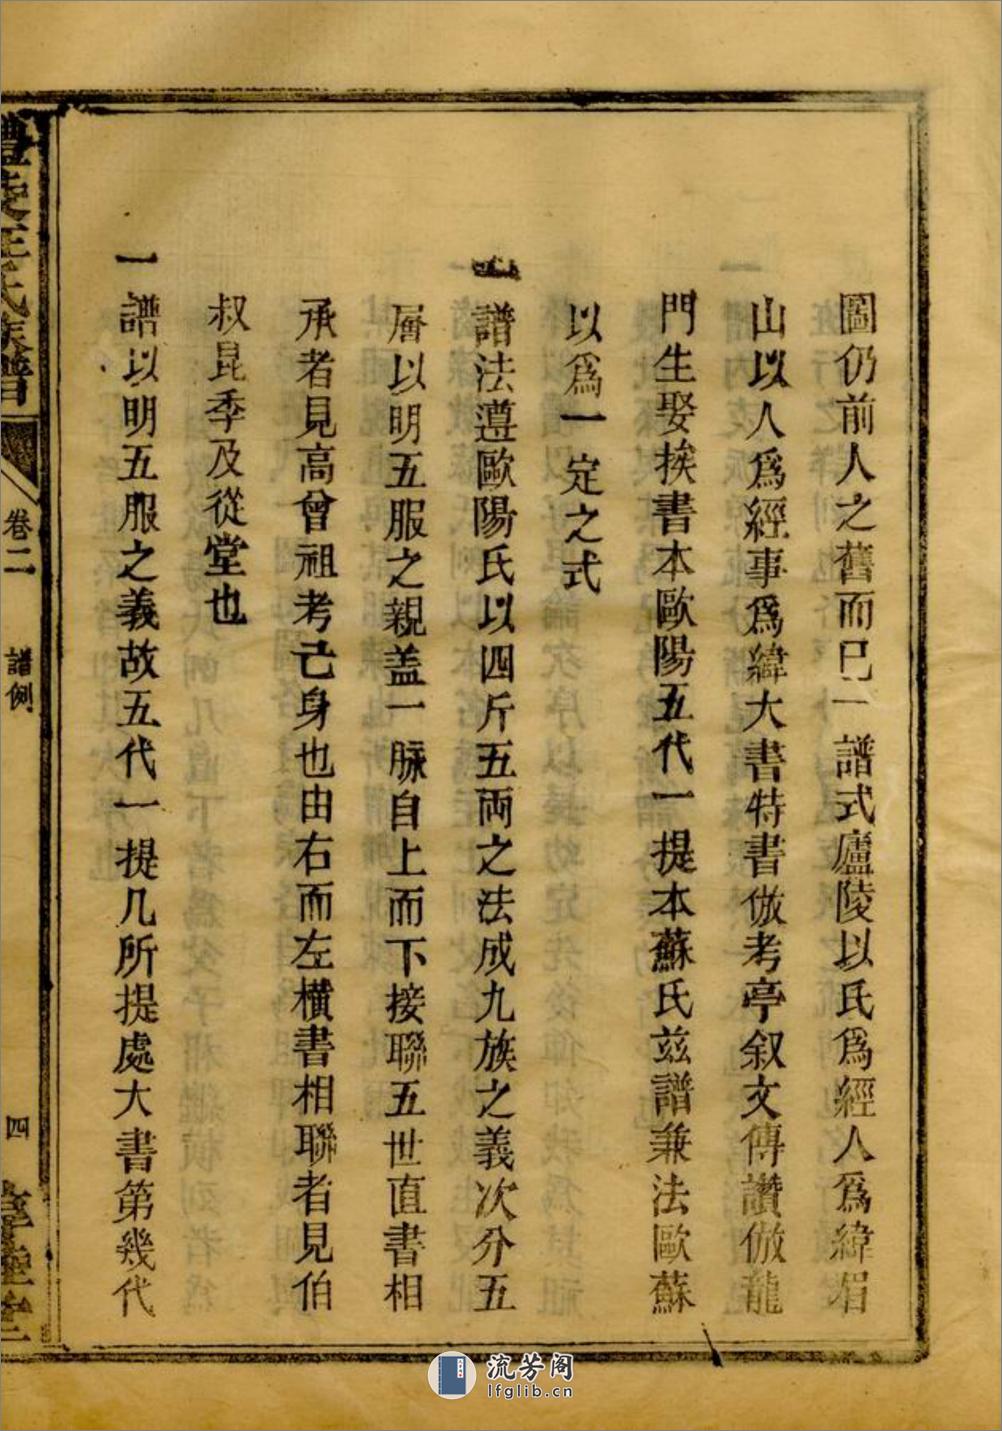 圖仍前人之舊而巳一譜式廬陵以氏爲經人爲緯眉
山以人爲經事爲緯大書特書倣考亭叙文傳讚倣龍
門生娶挨書本歐陽五代一提本蘇氏兹譜兼法歐蘇
以爲一定之式
一譜法遵歐陽氏以四斤五両之法成九族之義次分五
層以明五服之親盖一脉自上而下接聯五世直書相
承者見高曾祖考己身也由右而左橫書相聯者見伯
叔昆季及從堂也
一譜以明五服之義故五代一提几所提處大書第幾代
醴陵汪氏族譜
卷二
譜例
四
流芳阁
lfglib.cn